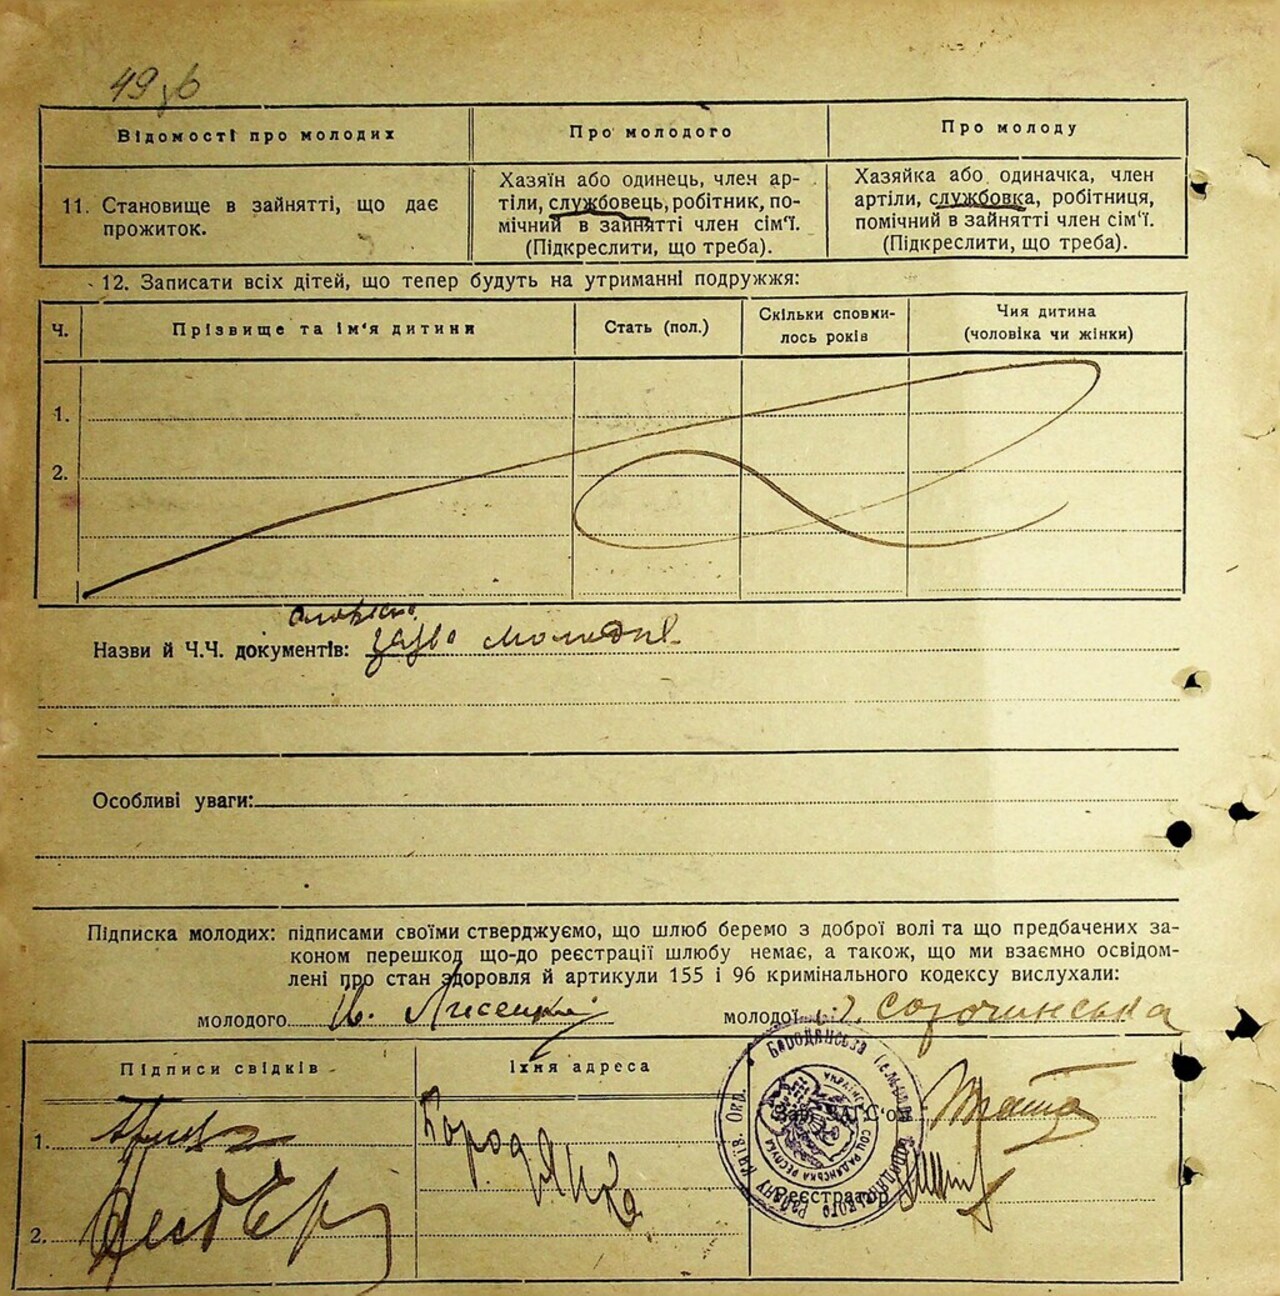 49зв
Відомості про молодих
Про молодого
Про молоду
11. Становище в зайнятті, що дає
прожиток.
Хазяїн або одинець, член ар-
тіли, службовець, робітник, по-
мічний в зайнятті член сім'ї.
(Підкреслити, що треба).
Хазяйка або одиначка, член
артіли, службовка, робітниця,
помічний в зайнятті член сім'ї.
(Підкреслити, що треба).
12. Записати всіх дітей, що тепер будуть на утриманні подружжя:
Ч.
Прізвище та ім'я дитини
Стать (пол.)
Скільки сповни-
лось років
Чия дитина
(чоловіка чи жінки)
1.
2.
Назви й Ч.Ч. документів: молодих
Особливі уваги:
Підписка молодих: підписами своїми стверджуємо, що шлюб беремо з доброї волі та що предбачених за-
коном перешкод що-до реєстрації шлюбу немає, а також, що ми взаємно освідом-
лені про стан здоровля й артикули 155 і 96 кримінального кодексу вислухали:
молодого Лисецкий молодої Сорочинська
Підписи свідків
Їхня адреса
1.
2.
Бородянка
Зав. ЗАГС'ом
Реєстратор